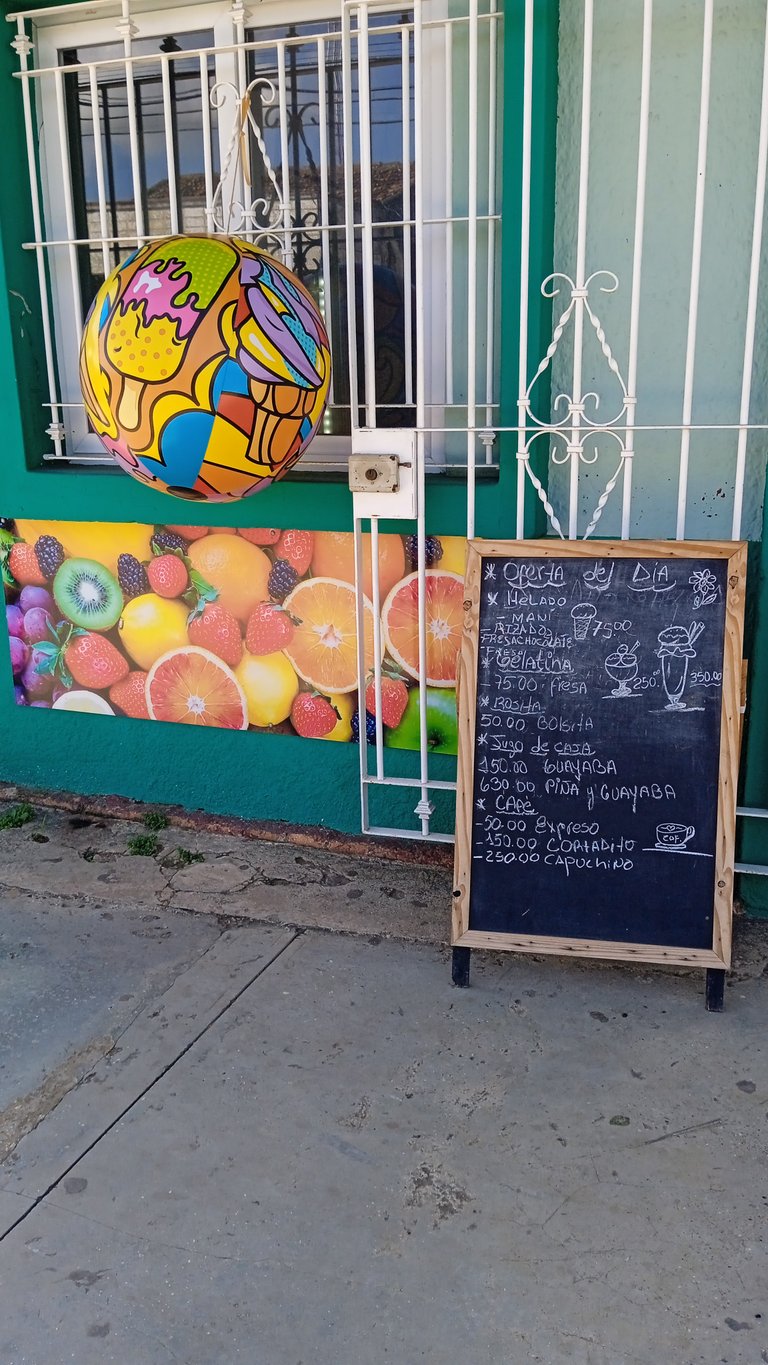 * Oferta del DíA
* HeLADO
- MANí
- RIZADO
FRESA CHOCOLATE
- FRESA
75.00
250.00
350.00
* Gelatina
- 75.00 fresa
* ROSITA
50.00 BOLSITA
* Jugo de CAJA
150.00 GUAYABA
630.00 PIÑA y GUAYABA
* CAFé
- 50.00 Expreso
- 150.00 CORTADITO
- 250.00 CAPUCHINO
CAF.